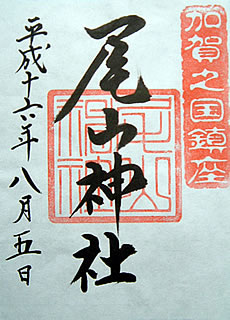 加賀之国鎮座
尾山神社
平成十六年八月五日